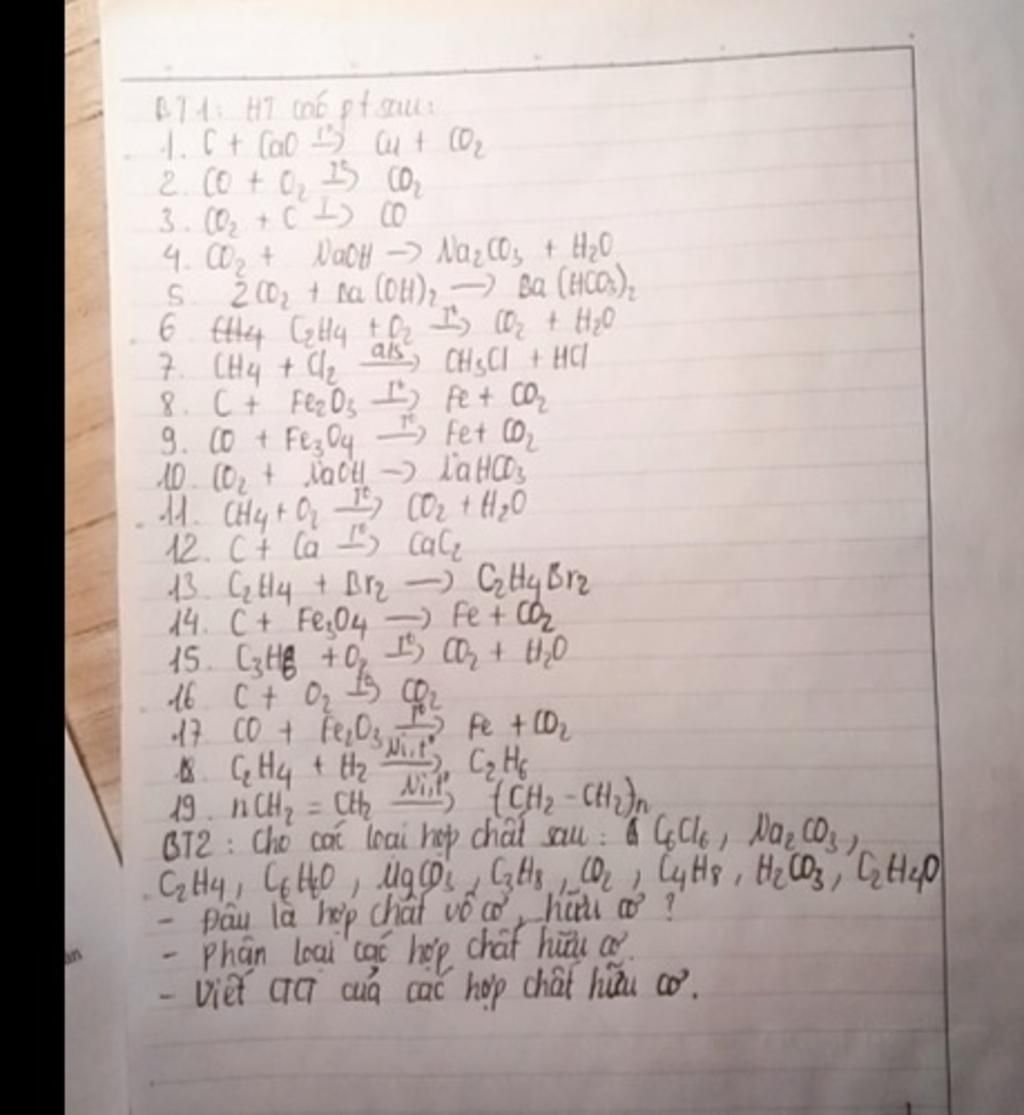 BT1: HT các pt sau:
1. C + CuO t°→ Cu + CO₂
2. CO + O₂ t°→ CO₂
3. CO₂ + C t→ CO
4. CO₂ + NaOH → Na₂CO₃ + H₂O
5. 2CO₂ + Ba(OH)₂ → Ba(HCO₃)₂
6 C₂H₄ + O₂ t°→ CO₂ + H₂O
7. CH₄ + Cl₂ a/s→ CH₃Cl + HCl
8. C + Fe₂O₃ t°→ Fe + CO₂
9. CO + Fe₃O₄ t°→ Fe + CO₂
10. CO₂ + NaOH → NaHCO₃
11. CH₄ + O₂ t°→ CO₂ + H₂O
12. C + Ca t°→ CaC₂
13. C₂H₄ + Br₂ → C₂H₄Br₂
14. C + Fe₃O₄ → Fe + CO₂
15. C₃H₈ + O₂ t°→ CO₂ + H₂O
16 C + O₂ t°→ CO₂
17 CO + Fe₂O₃ t°→ Fe + CO₂
18 C₂H₄ + H₂ Ni,t°→ C₂H₆
19. nCH₂ = CH₂ Ni,t°→ (CH₂ - CH₂)n
BT2: Cho các loại hợp chất sau: C₆Cl₆, Na₂CO₃,
C₂H₄, MgCO₃, C₃H₈, CO₂, C₄H₈, H₂CO₃, C₂H₄O
- Đâu là hợp chất vô cơ, hữu cơ?
- Phân loại các hợp chất hữu cơ.
- Viết CTCT của các hợp chất hữu cơ.